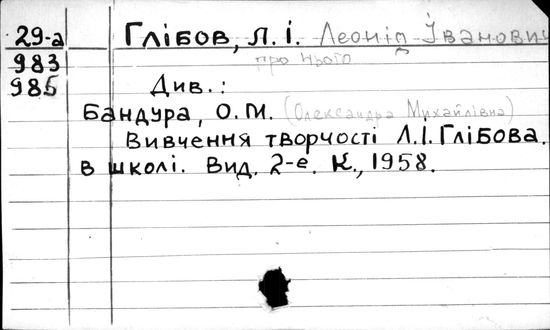 29-а Глібов, Л. І. Леонід Іванович
983 про нього
985 Див.:
Бандура, О.М. (Олександра Михайлівна)
Вивчення творчості Л.І.Глібова.
в школі. Вид. 2-е. К., 1958.